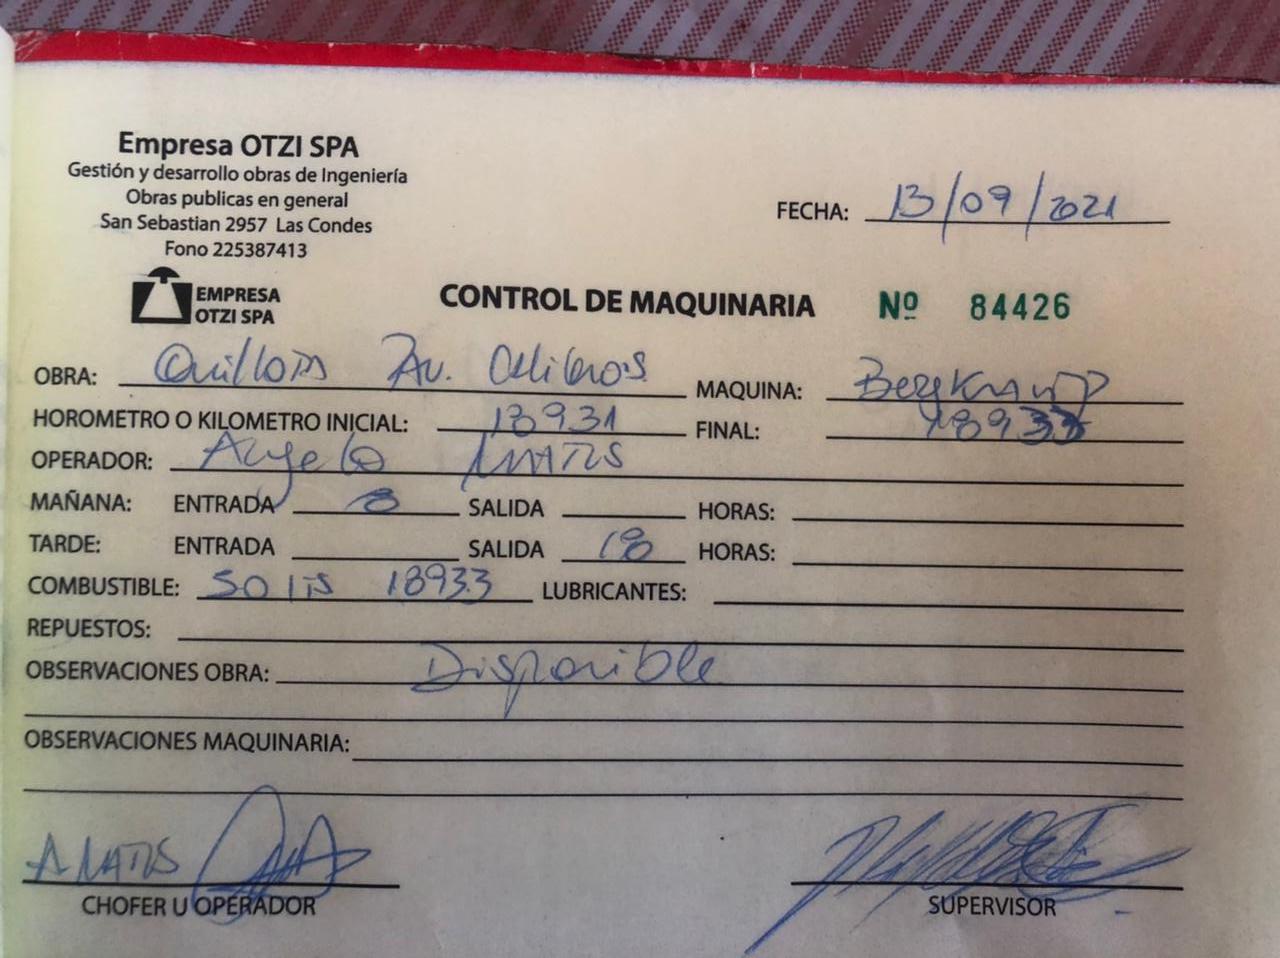 Empresa OTZI SPA
Gestión y desarrollo obras de Ingeniería
Obras publicas en general
San Sebastian 2957 Las Condes
Fono 225387413
FECHA: 13/09/2021
EMPRESA
OTZI SPA
CONTROL DE MAQUINARIA Nº 84426
OBRA: Quillota Av. MAQUINA:
HOROMETRO O KILOMETRO INICIAL: 18931 FINAL: 18933
OPERADOR: Angelo
MAÑANA: ENTRADA 8 SALIDA HORAS:
TARDE: ENTRADA SALIDA 18 HORAS:
COMBUSTIBLE: 50 lts 18933 LUBRICANTES:
REPUESTOS:
OBSERVACIONES OBRA: Disponible
OBSERVACIONES MAQUINARIA:
CHOFER U OPERADOR SUPERVISOR